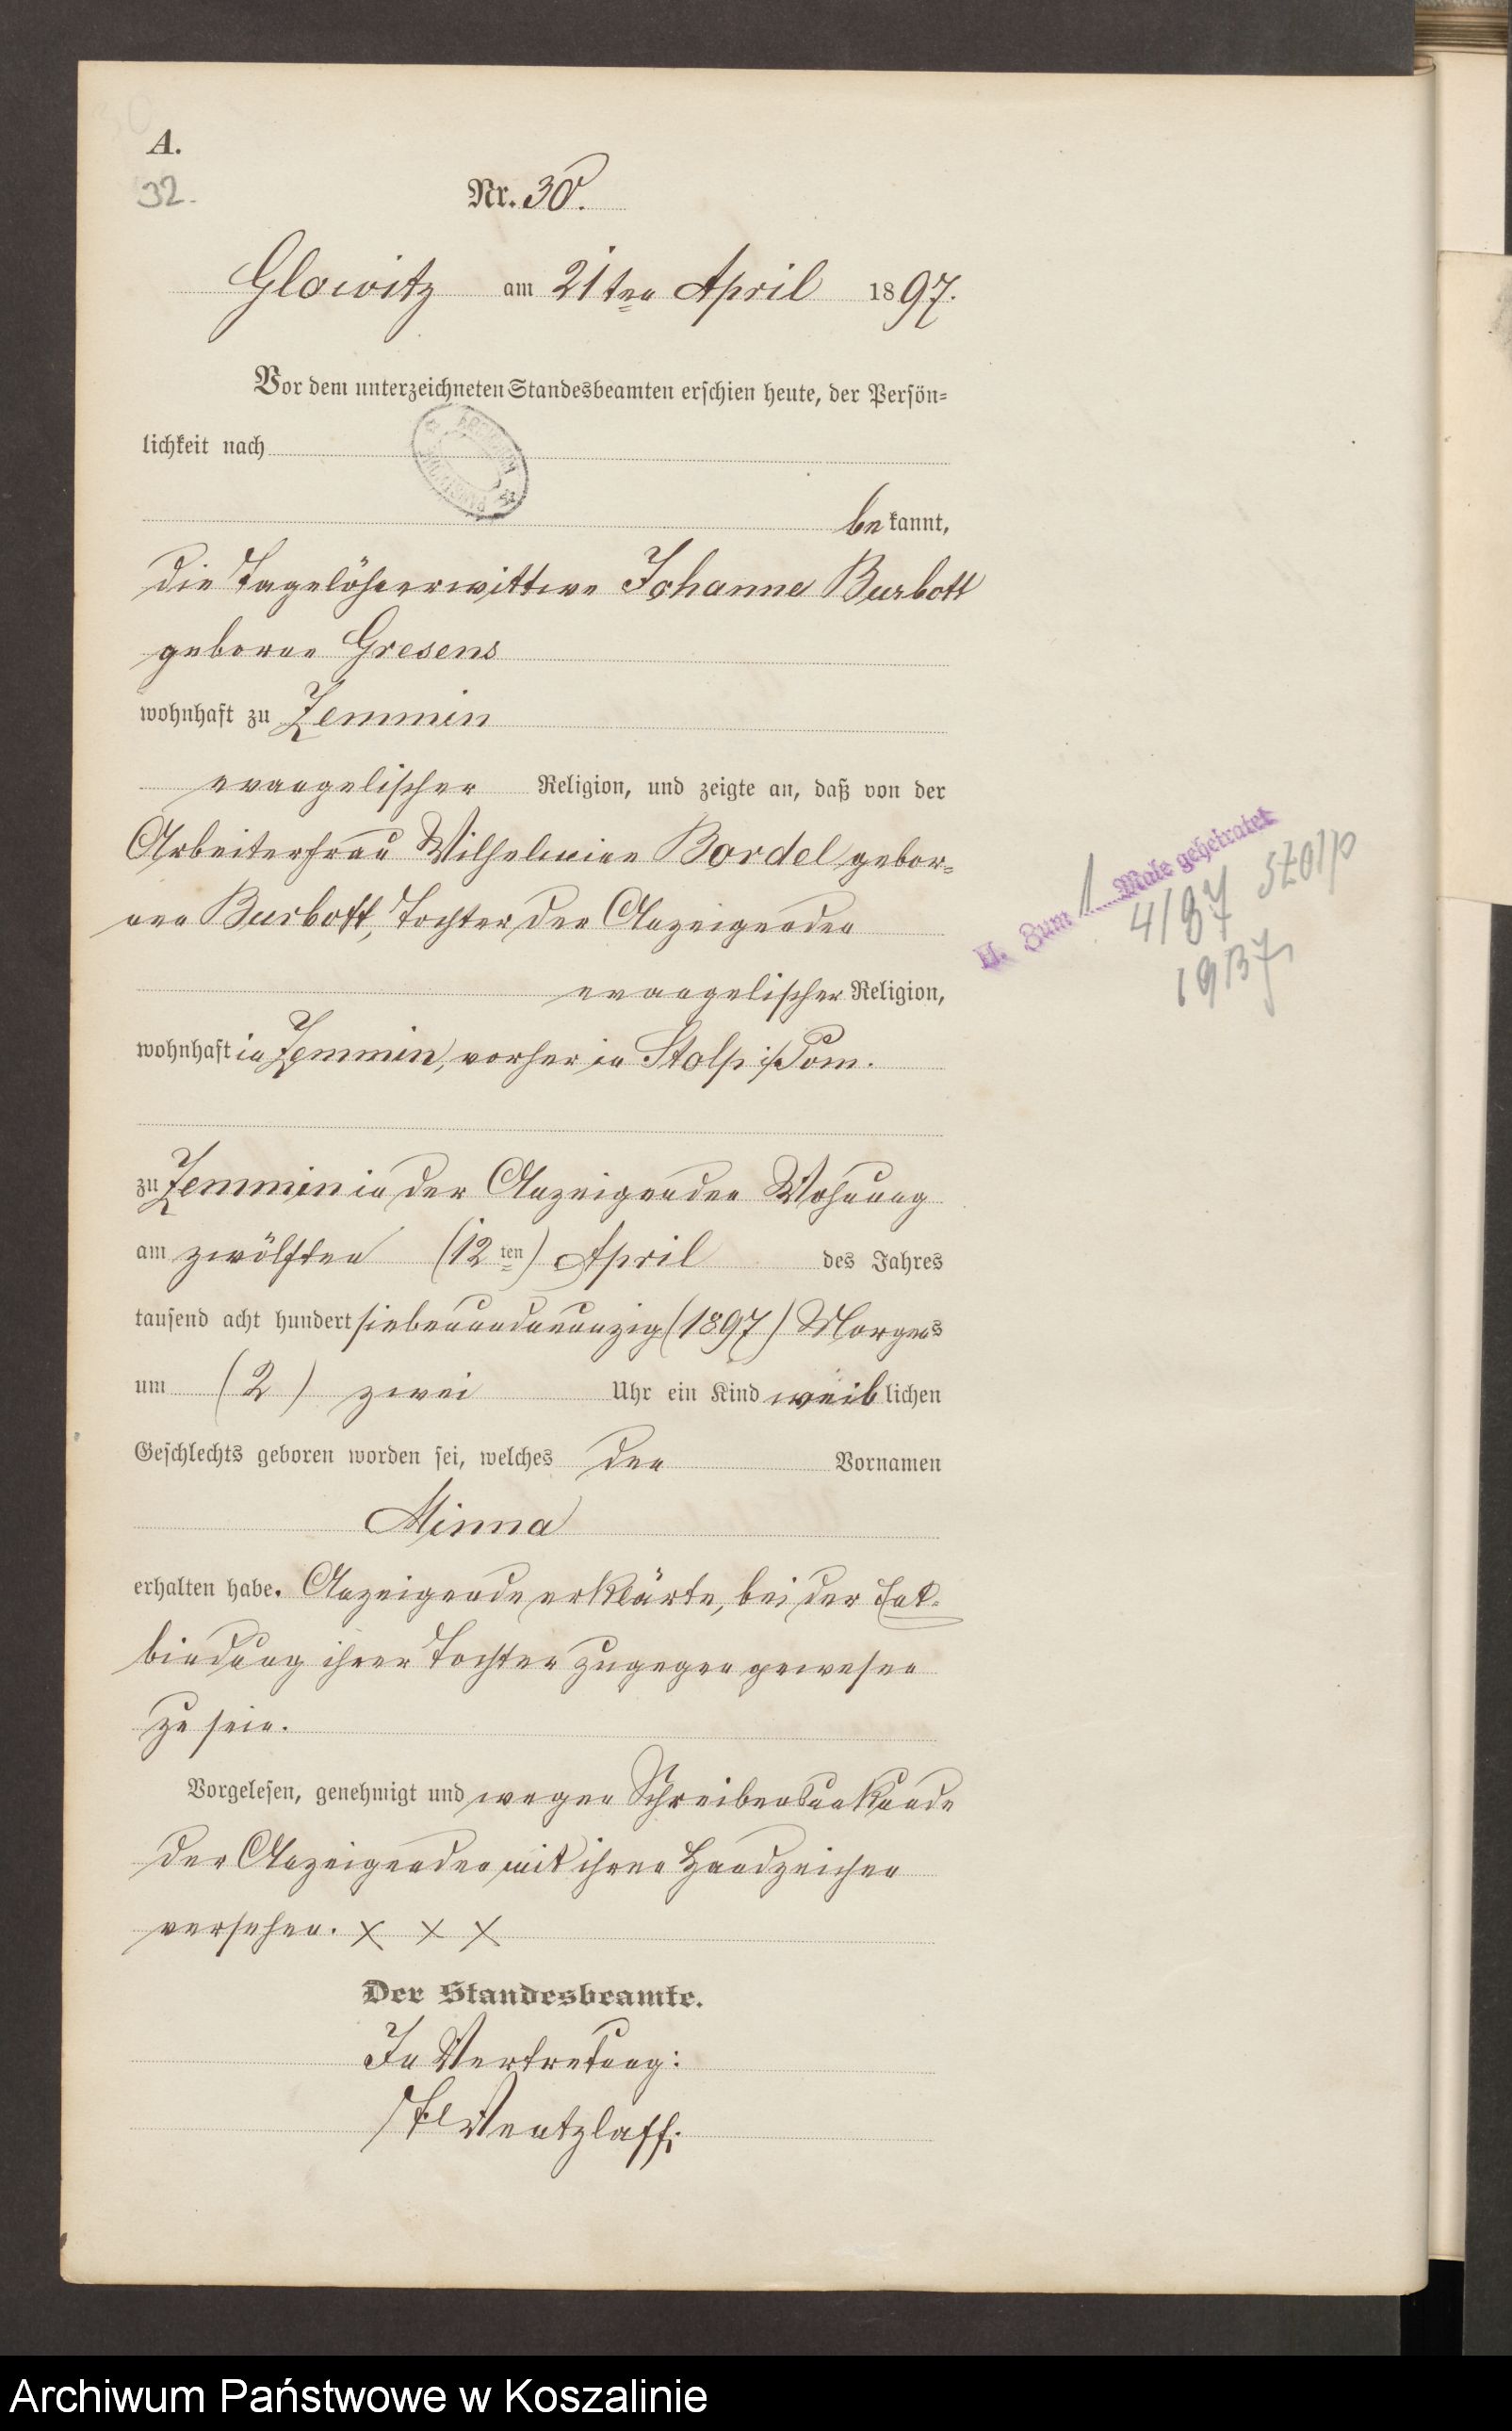 A.
32.
Nr. 30.
Glowitz am 21ten April 1897.
Vor dem unterzeichneten Standesbeamten erschien heute, der Persön=
lichkeit nach
bekannt,
die Tagelöhnerwittwe Johanne Burbott
geborne Gresens
wohnhaft zu Zemmin
evangelischer Religion, und zeigte an, daß von der
Arbeiterfrau Wilhelmine Bordel gebor=
nen Burbott, Tochter der Anzeigenden
evangelischer Religion,
wohnhaft in Zemmin, vorher in Stolp i/Pom.
zu Zemmin in der Anzeigenden Wohnung
am zwölften (12ten) April des Jahres
tausend acht hundert siebenundneunzig (1897) Morgens
um (2) zwei Uhr ein Kind weiblichen
Geschlechts geboren worden sei, welches den Vornamen
Minna
erhalten habe. Anzeigende erklärte, bei der Ent=
bindung ihrer Tochter zugegen gewesen
zu sein.
Vorgelesen, genehmigt und wegen Schreibensunkunde
der Anzeigenden mit ihren Handzeichen
versehen. x x x
Der Standesbeamte.
In Vertretung:
Wentzlaff.
H. Zum 1 Male geheiratet
Stolp
1937
Archiwum Państwowe w Koszalinie